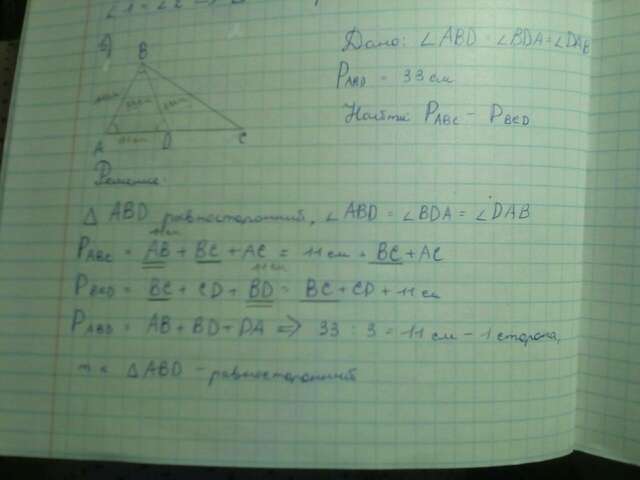 ∠1 = ∠2
B
A D C
Дано: ∠ABD = ∠BDA = ∠DAB
P_ABD = 33 см
Найти: P_ABC - P_BCD
Решение:
△ ABD равносторонний, ∠ABD = ∠BDA = ∠DAB
P_ABC = AB + BC + AC = 11 см + BC + AC
11 см
P_BCD = BC + CD + BD = BC + CD + 11 см
P_ABD = AB + BD + DA => 33 : 3 = 11 см - 1 сторона,
т к △ABD - равносторонний